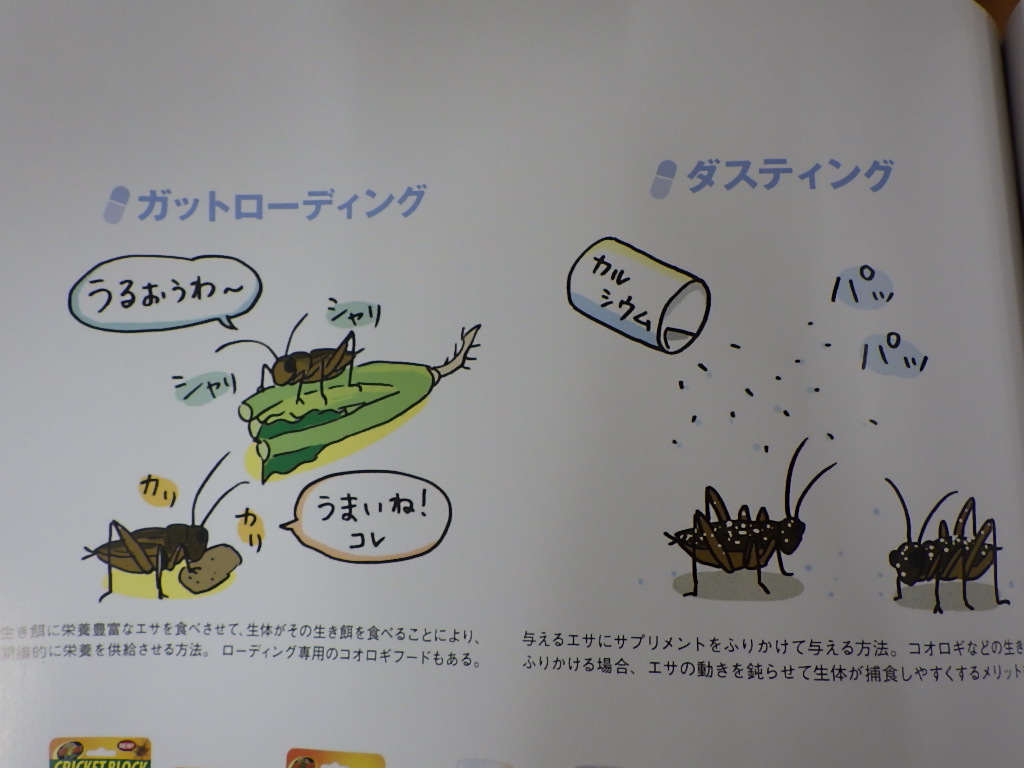 ガットローディング
うるおうわ〜
シャリ
シャリ
カリ
カリ
うまいね!
コレ
生き餌に栄養豊富なエサを食べさせて、生体がその生き餌を食べることにより、
間接的に栄養を供給させる方法。 ローディング専用のコオロギフードもある。
ダスティング
カル
シウム
パッ
パッ
与えるエサにサプリメントをふりかけて与える方法。コオロギなどの生き
ふりかける場合、エサの動きを鈍らせて生体が捕食しやすくするメリット
CRICKET BLOCK